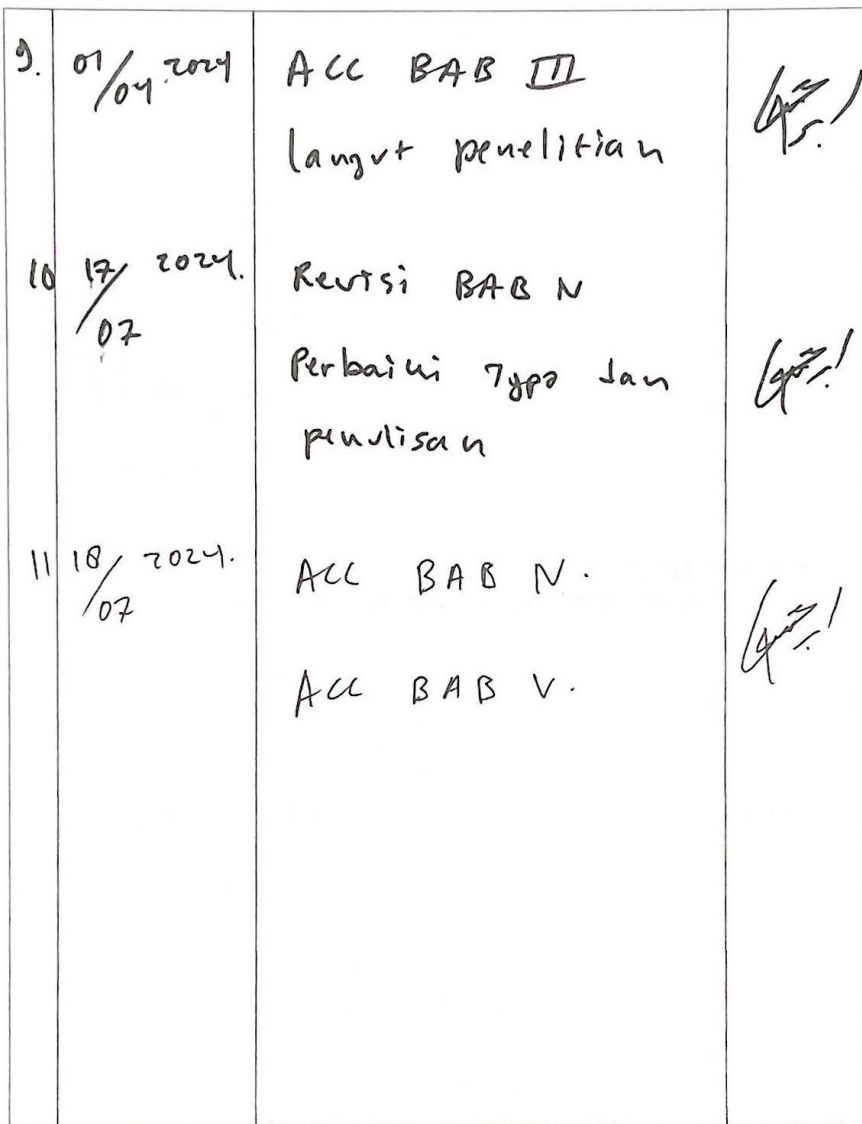 9. 01/04 2024 ACC BAB III
lanjut penelitian
10 17/07 2024. Revisi BAB IV
Perbaiki Typo dan
penulisan
11 18/07 2024. ACC BAB IV.
ACC BAB V.